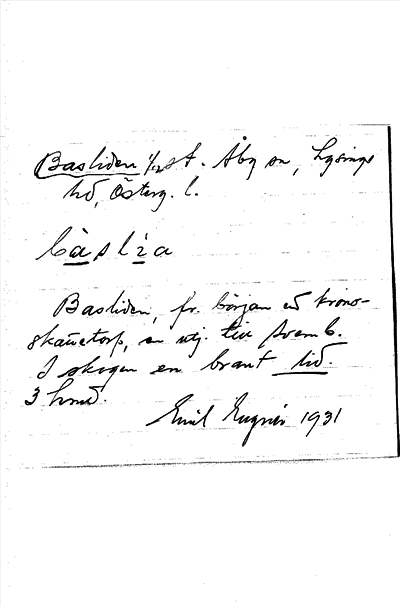 Basliden 1/2 st. Åby sn, Lysings
hd, Österg. l.
bàslìa
Basliden, fr. början ett krono-
skattetorp, en utj. till
I skogen en brant lid.
3 hmd.
Emil 1931